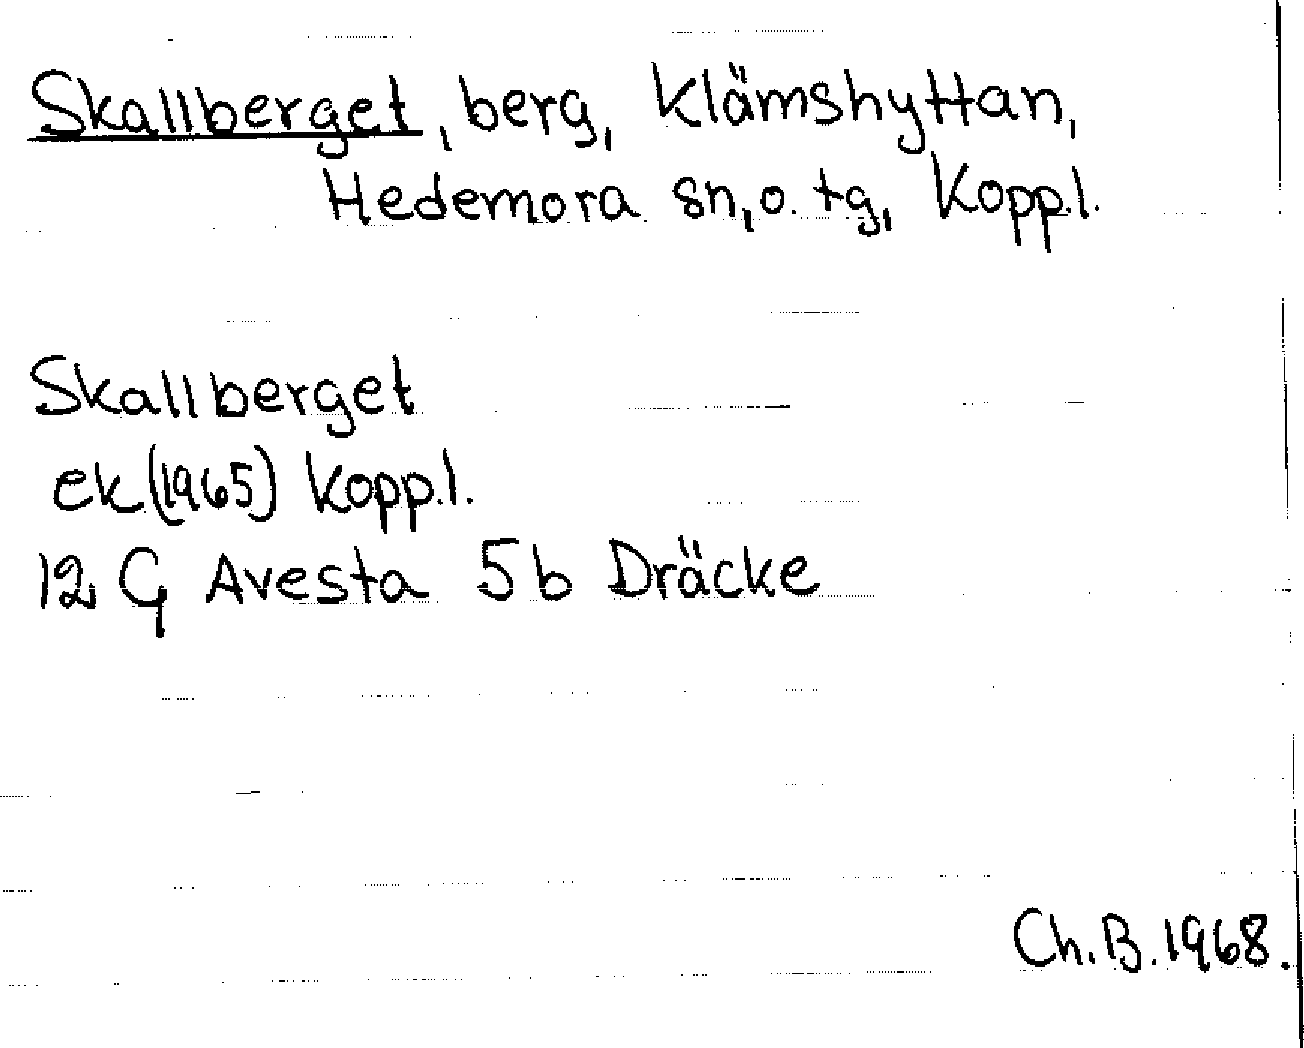 Skallberget, berg, Klämshyttan,
Hedemora sn, o. tg, Koppl.
Skallberget
ek (1965) Kopp.l.
12 G Avesta 5b Dräcke
Ch. B. 1968.